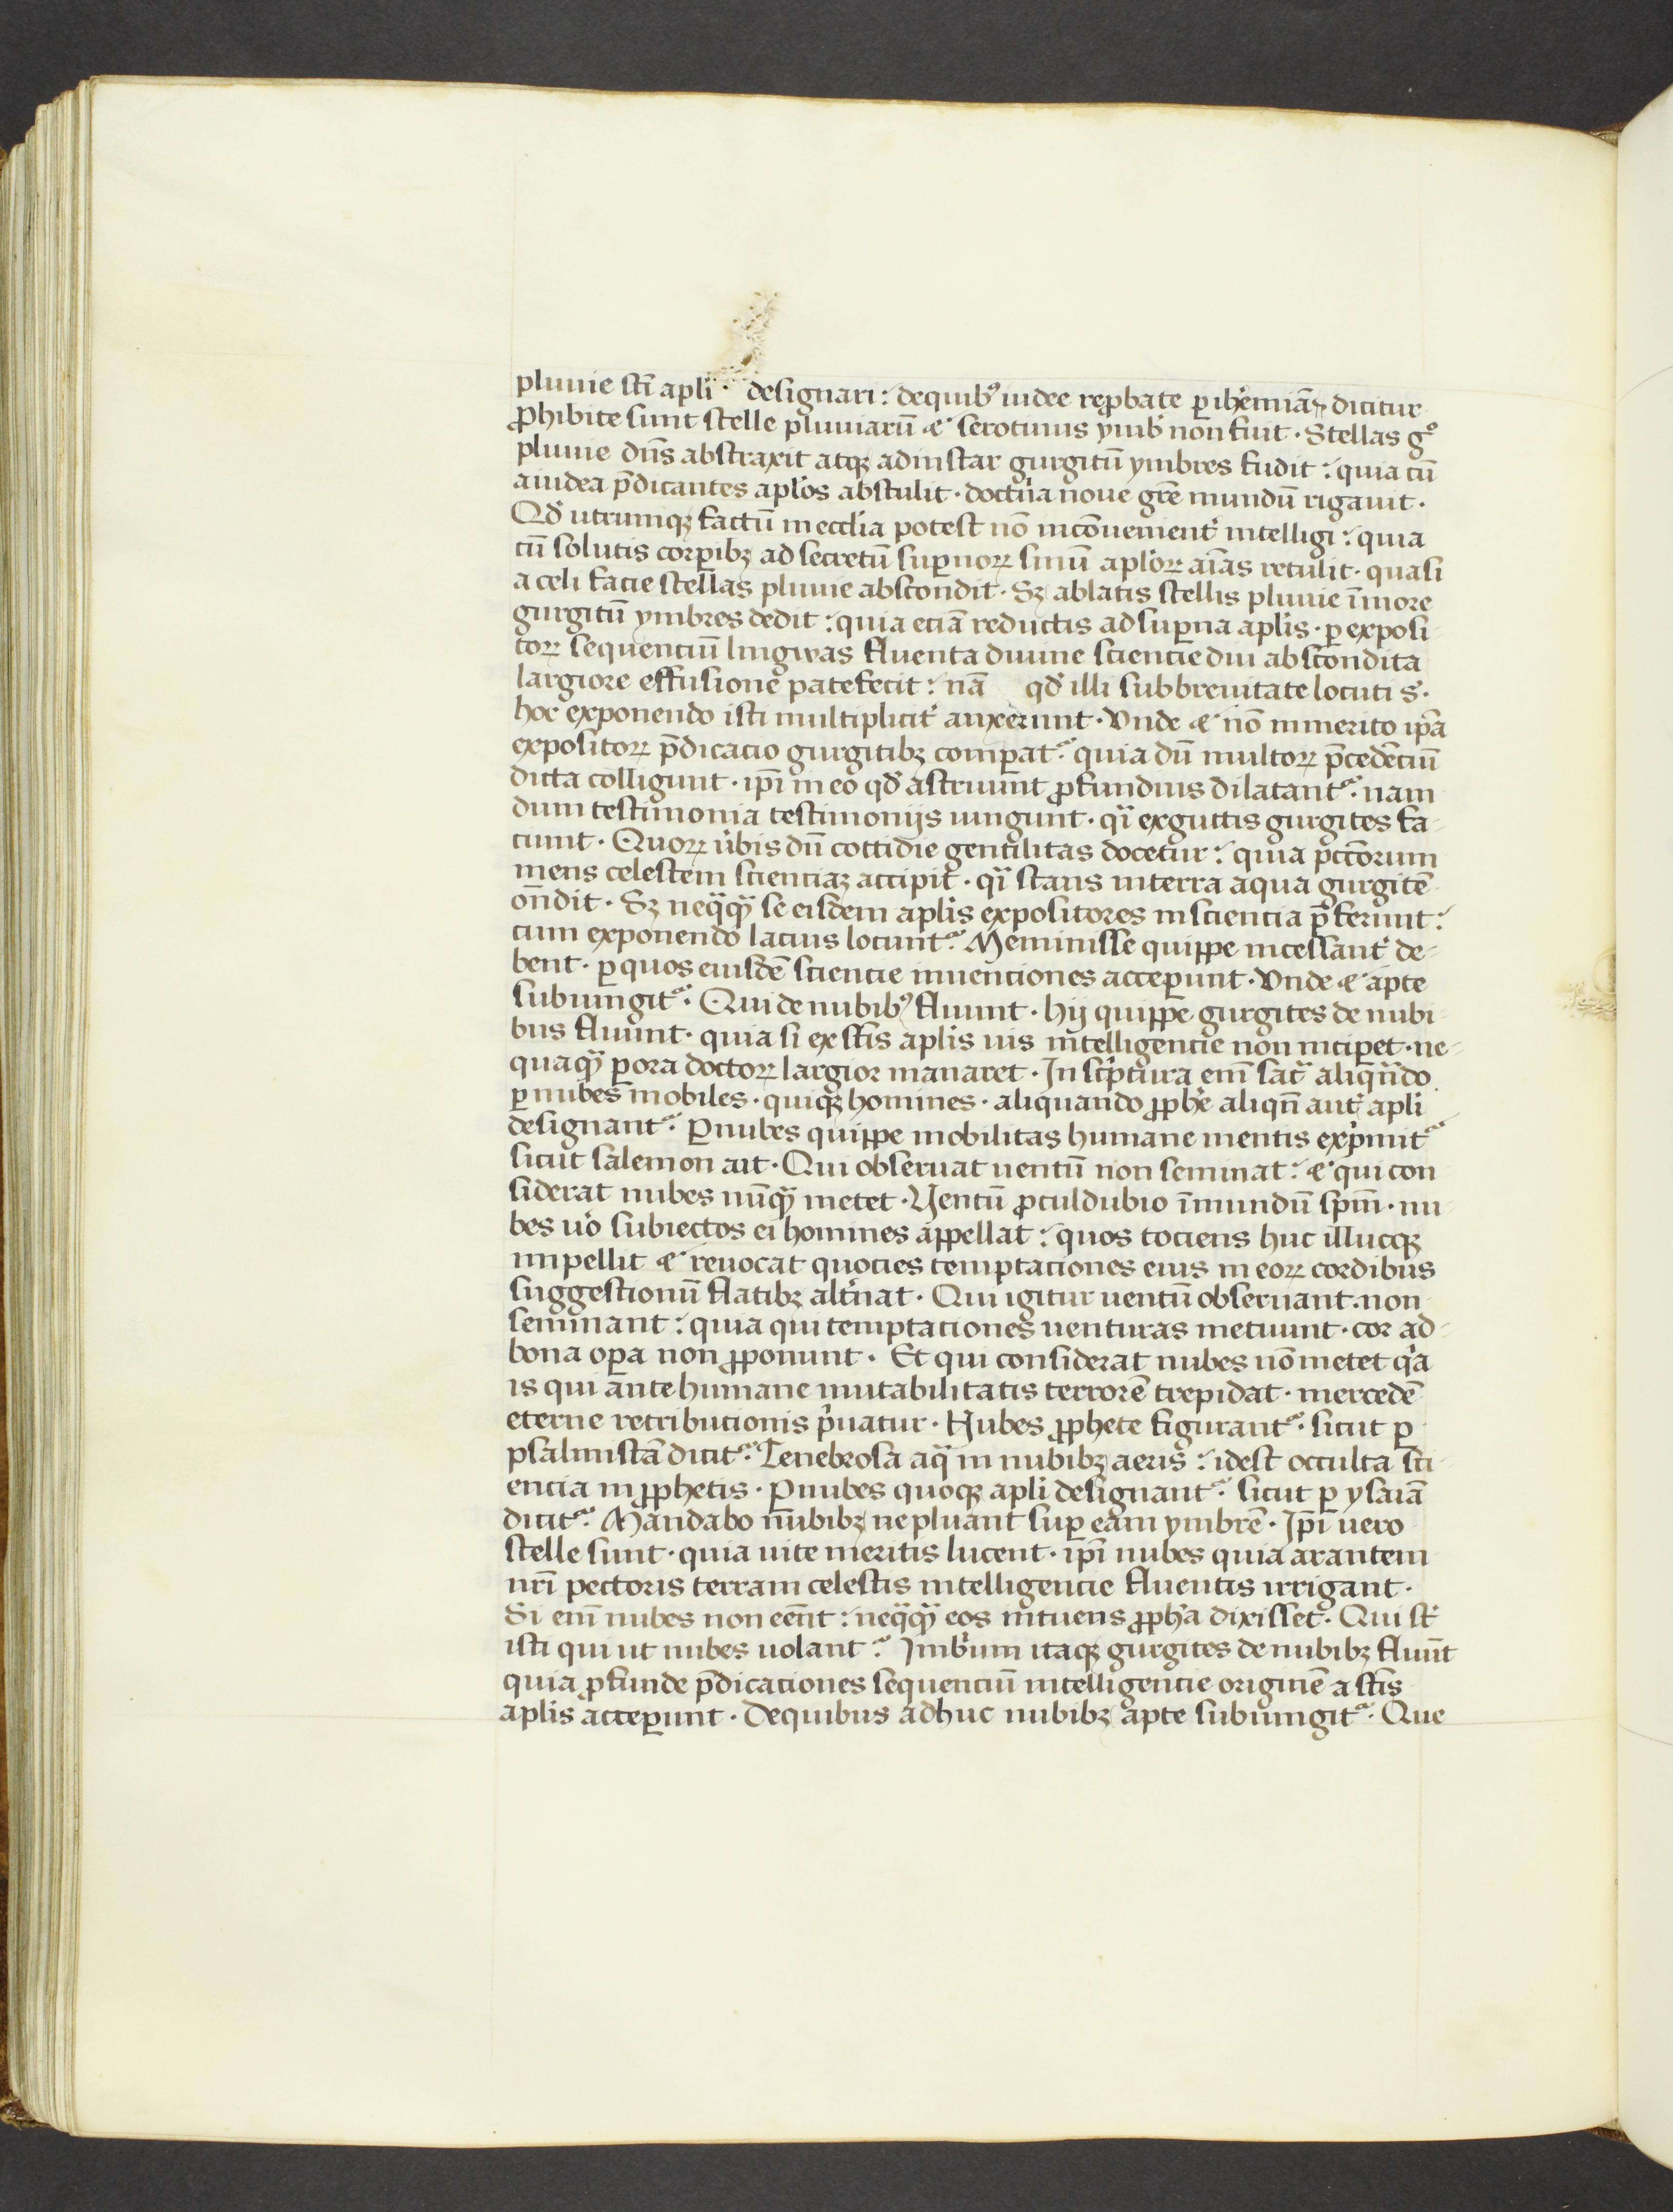 pluuie sc̄i apl̄i · designari : de quibꝰ iudee reꝓbate ꝑ ih̓emiā dicitur
ꝓhibite sunt stelle pluuiarū ⁊ serotinus ymb̓ non fuit · Stellas gͦ
pluuie dn̄s abstraxit atqꝫ ad instar gurgitū ymbres fudit : quia cū
a iudea p̄dicantes apl̓os abstulit · doct̓na noue gr̄e mundū rigauit ·
Qd̓ utrumqꝫ factū in eccl̓ia potest nō incōuenient̓ intelligi : quia
cū solutis corꝑibꝫ ad secretū suꝑnoꝝ sinū apl̓oꝝ aīas retulit · quasi
a celi facie stellas pluuie abscondit · Sꝫ ablatis stellis pluuie ī more
gurgitū ymbres dedit : quia eciā reductis ad suꝑna apl̓is · ꝑ exposi-
toꝝ sequenciū lingwas fluenta diuine sciencie diu abscondita
largiore effusione patefecit : nā qd̓ illi sub breuitate locuti s̓ ·
hoc exponendo isti multiplicit̓ auxerunt · Vnde ⁊ nō inmerito ip̄a
expositoꝝ p̄dicacio gurgitibꝫ comꝑat᷑ quia dū multoꝝ p̄cedēciū
dicta colligunt · ip̄i in eo qd̓ astruunt ꝓfundius dilatant᷑ · nam
dum testimonia testimonijs iungunt · qͣi ex guttis gurgites fa-
ciunt · Quoꝝ u̓bis dū cottidie gentilitas docetur : quia pcc̄orum
mens celestem scienciaꝫ accipit · qͣi stans in terra aqua gurgitē
on̄dit · Sꝫ neqͣqͣ se eisdem apl̓is expositores in sciencia p̄ferunt :
cum exponendo lacius locunt᷑ Meminisse quippe incessant̓ de-
bent · ꝑ quos eiusdē sciencie inuenciones acceꝑunt · Vnde ⁊ apte
subiungit᷑ · Qui de nubibꝰ fluunt · hij quippe gurgites de nubi-
bus fluunt · quia si ex sc̄is apl̓is uis intelligencie non inciꝑet · ne-
quaqͣ ꝑ ora doctoꝝ largior manaret · In sc̓ptura em̄ sac̓ aliqn̄do
ꝑ nubes mobiles · quiqꝫ homines · aliquando ꝓph̓e aliqn̄ aut̓ apl̄i
designant᷑ · Ꝑ nubes quippe mobilitas humane mentis exp̓mit᷑
sicut salemon ait · Qui obseruat uentū non seminat : ⁊ qui con
siderat nubes nūqͣ metet · Uentū ꝓculdubio īmundū sp̄m · nu-
bes uͦo subiectos ei homines appellat : quos tociens huc illucqꝫ
impellit ⁊ reuocat quocies temptaciones eius in eoꝝ cordibus
suggestionū flatibꝫ alt̓nat · Qui igitur uentū obseruant · non
seminant : quia qui temptaciones uenturas metuunt · cor ad-
bona oꝑa non ꝓponunt · Et qui considerat nubes nō metet qͥa
is qui ante humane mutabilitatis terrorē trepidat · mercedē
eterne retribucionis p̓uatur · Nubes ꝓphete figurant᷑ · sicut ꝑ
psalmistā dicit᷑ · Tenebrosa aqͣ in nubibꝫ aeris : id est occulta sci-
encia in ꝓphetis · Ꝑ nubes quoqꝫ apl̄i designant᷑ · sicut ꝑ ysaiā
dicit᷑ · Mandabo nubibꝫ ne pluant suꝑ eam ymbrē · Ip̄i uero
stelle sunt · quia uite meritis lucent · ip̄i nubes quia arantem
nr̄i pectoris terram celestis intelligencie fluentis irrigant ·
Si em̄ nubes non eēnt : neqͣqͣ eos intuens ꝓph̓a dixisset · Qui st̓
isti qui ut nubes uolant᷑ Imb̓um itaqꝫ gurgites de nubibꝫ fluūt
quia ꝓfunde p̄dicaciones sequenciū intelligencie originē a sc̄is
apl̓is acceꝑunt · De quibus adhuc nubibꝫ apte subiungit᷑ · Que